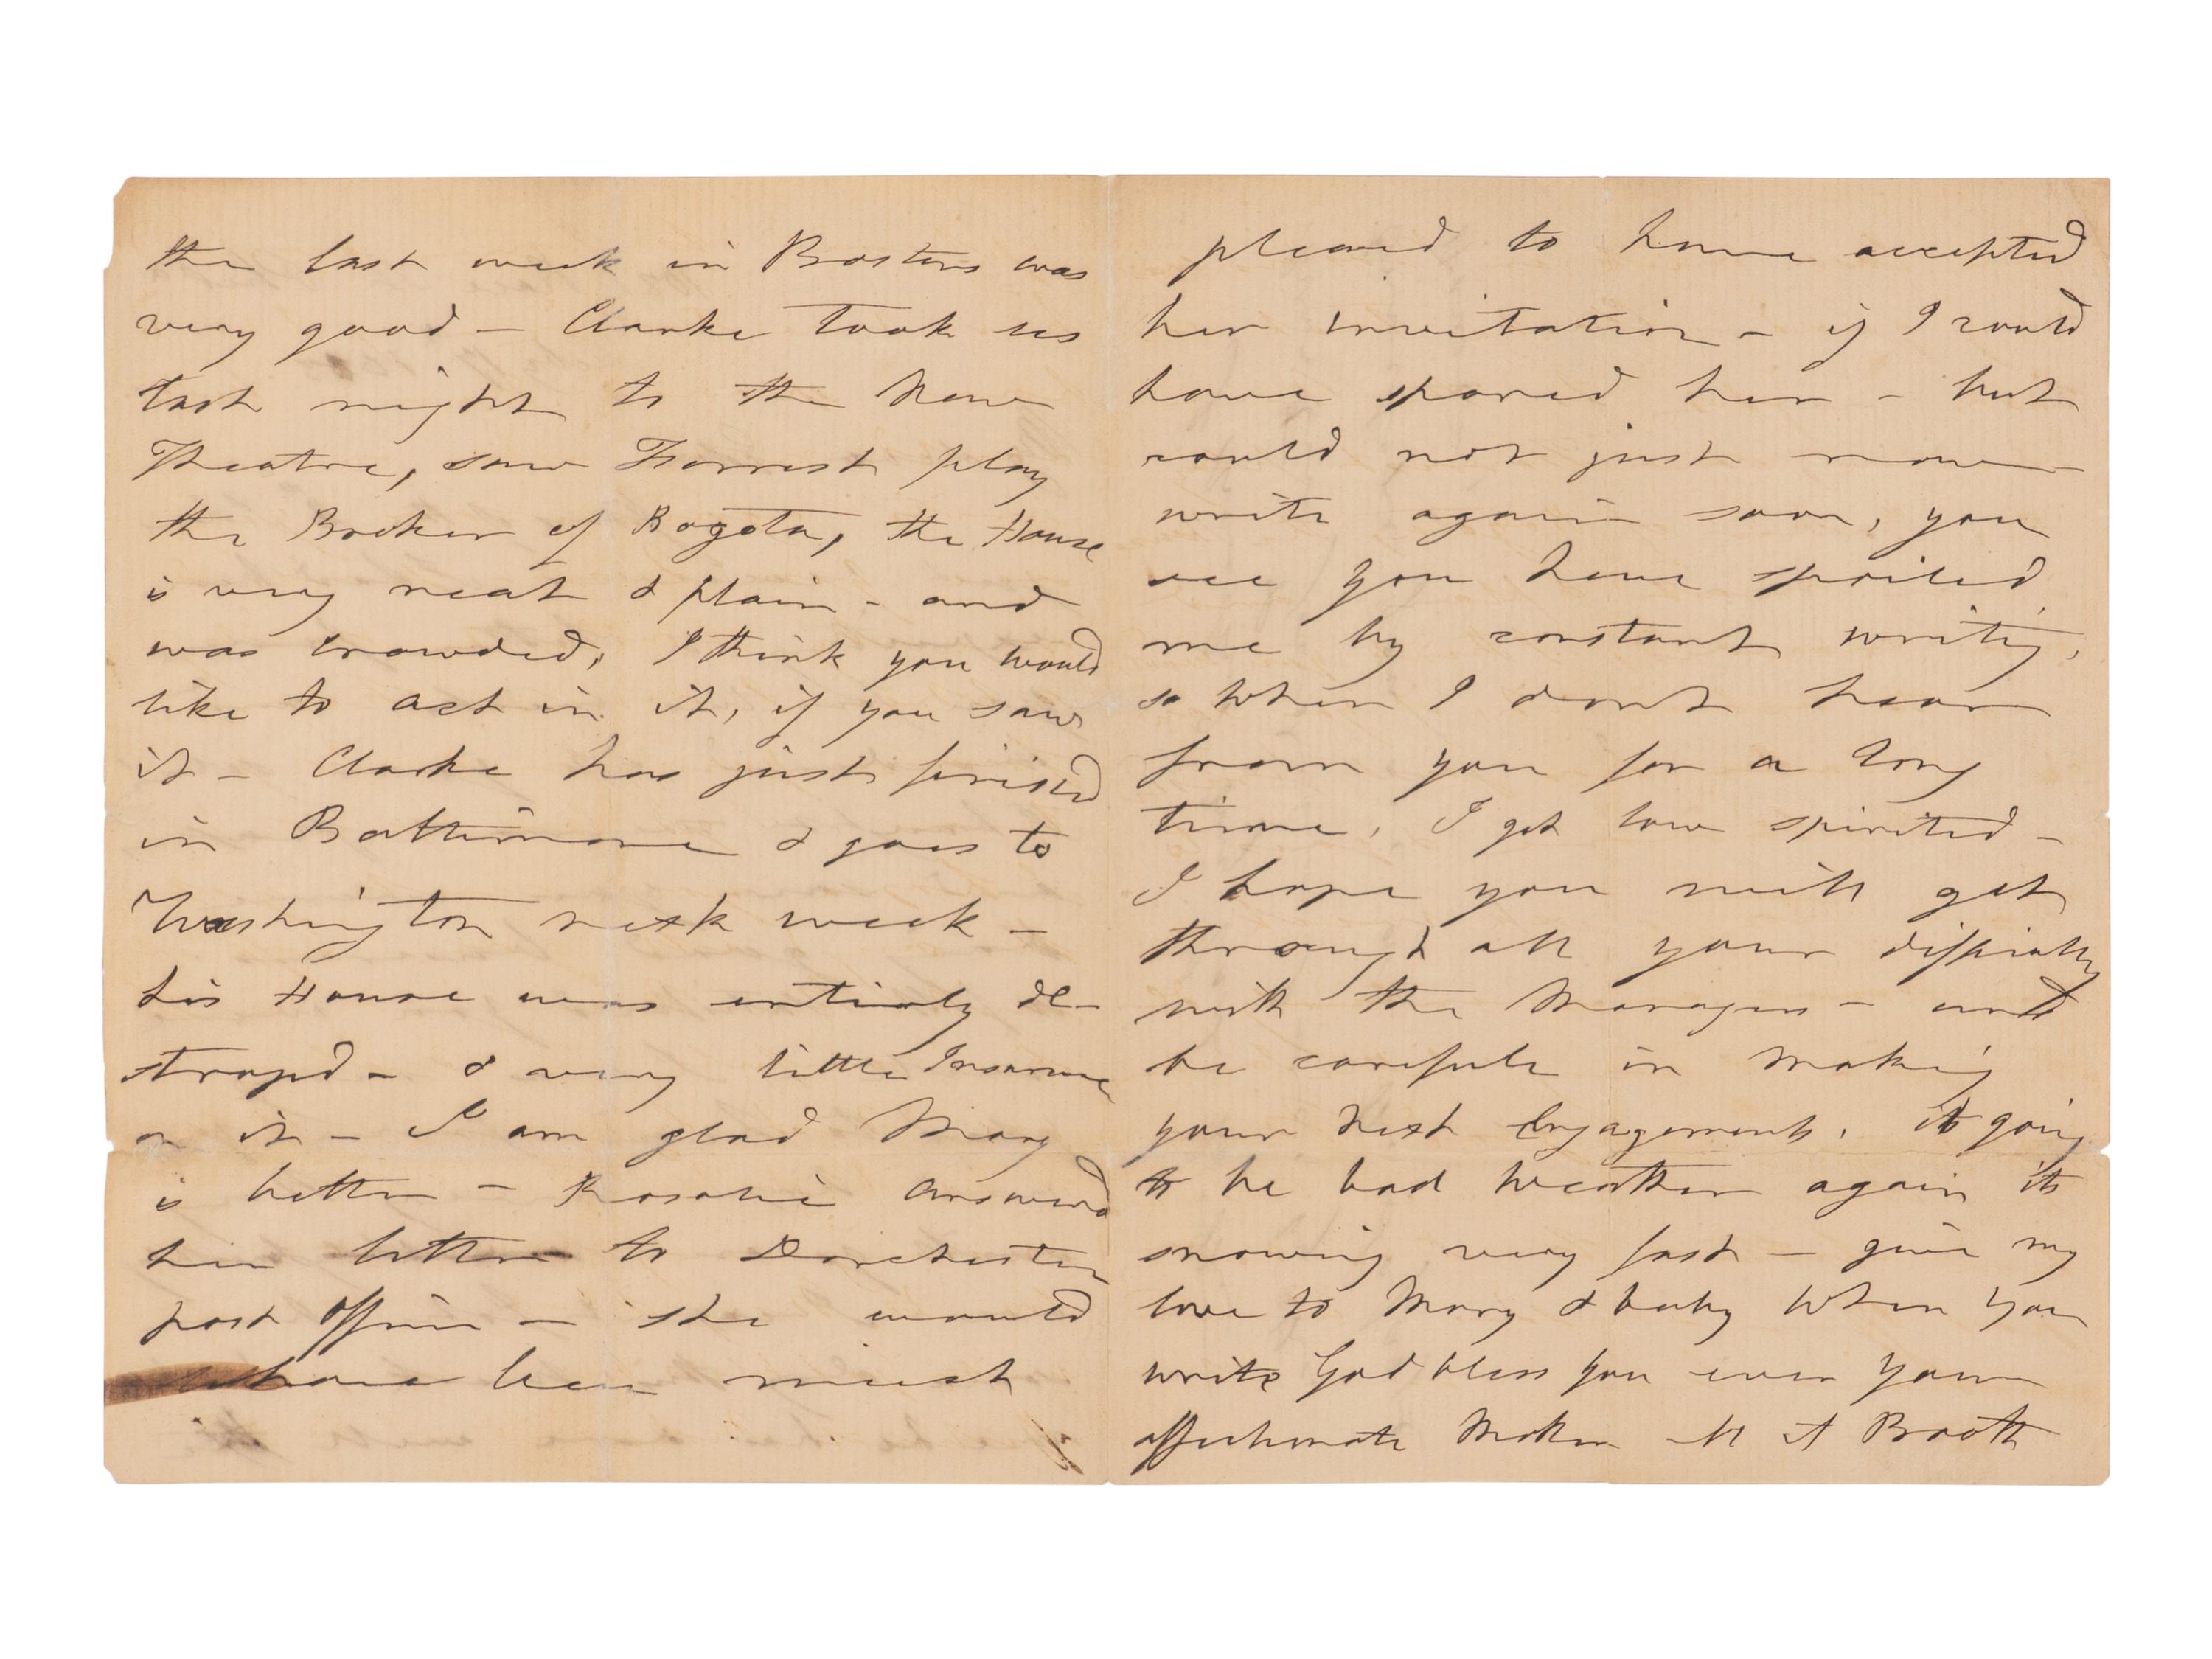 the last week in Boston was
very good – Clarke took us
last night to the New
Theatre, saw Forrest play
the Broker of Bogota, the House
is very neat & plain – and
was crowded, I think you would
like to act in it, if you saw
it – Clarke has just finishd
in Baltimore & goes to
Washington next week –
his House was entirely de-
stroyd – & very little Insurance
on it – I am glad Mary
is better – Rosalie answerd
her letter to Dorchester
post office – she would
have been much
pleased to have accepted
her invitation – if I could
have spared her – but
could not just now
write again soon, you
see you have spoiled
me by constant writig,
so when I dont hear
from you for a long
time, I get low spirited –
I hope you will get
through all your difficulty
with the Managers – and
be carefull in making
your next Engagements, its going
to be bad weather again its
snowing very fast – give my
love to Mary & baby when you
write God bless you ever your
affectionate Mother M A Booth